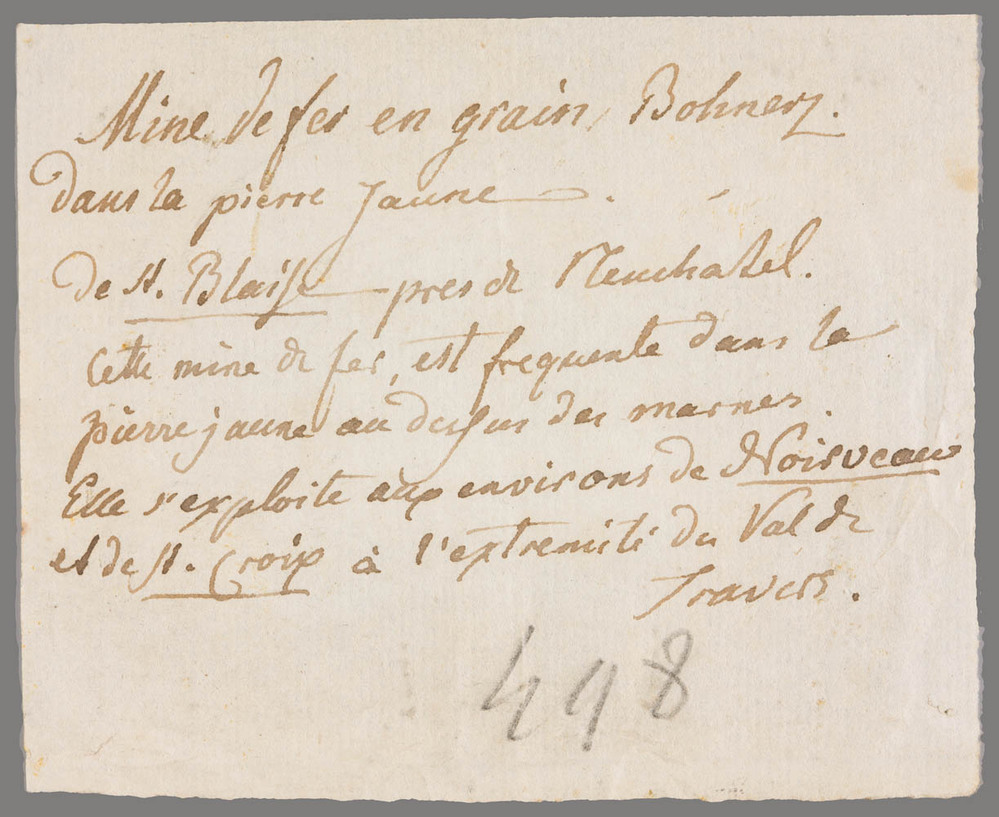 Mine de fer en grain, Bohnerz.
dans la pierre Jaune.
de St. Blaise pres de Neuchatel.
Cette mine de fer, est frequente dans la
pierre jaune au dessus des marnes.
Elle s'exploite aux environs de Noirveaux
et de St. Croix à l'extremité du Val de
Travers.
498